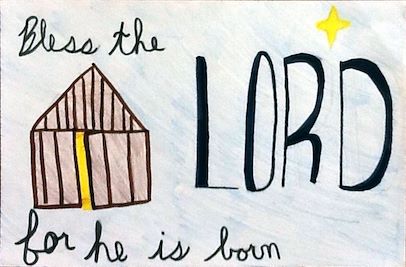 Bless the
LORD
for he is born